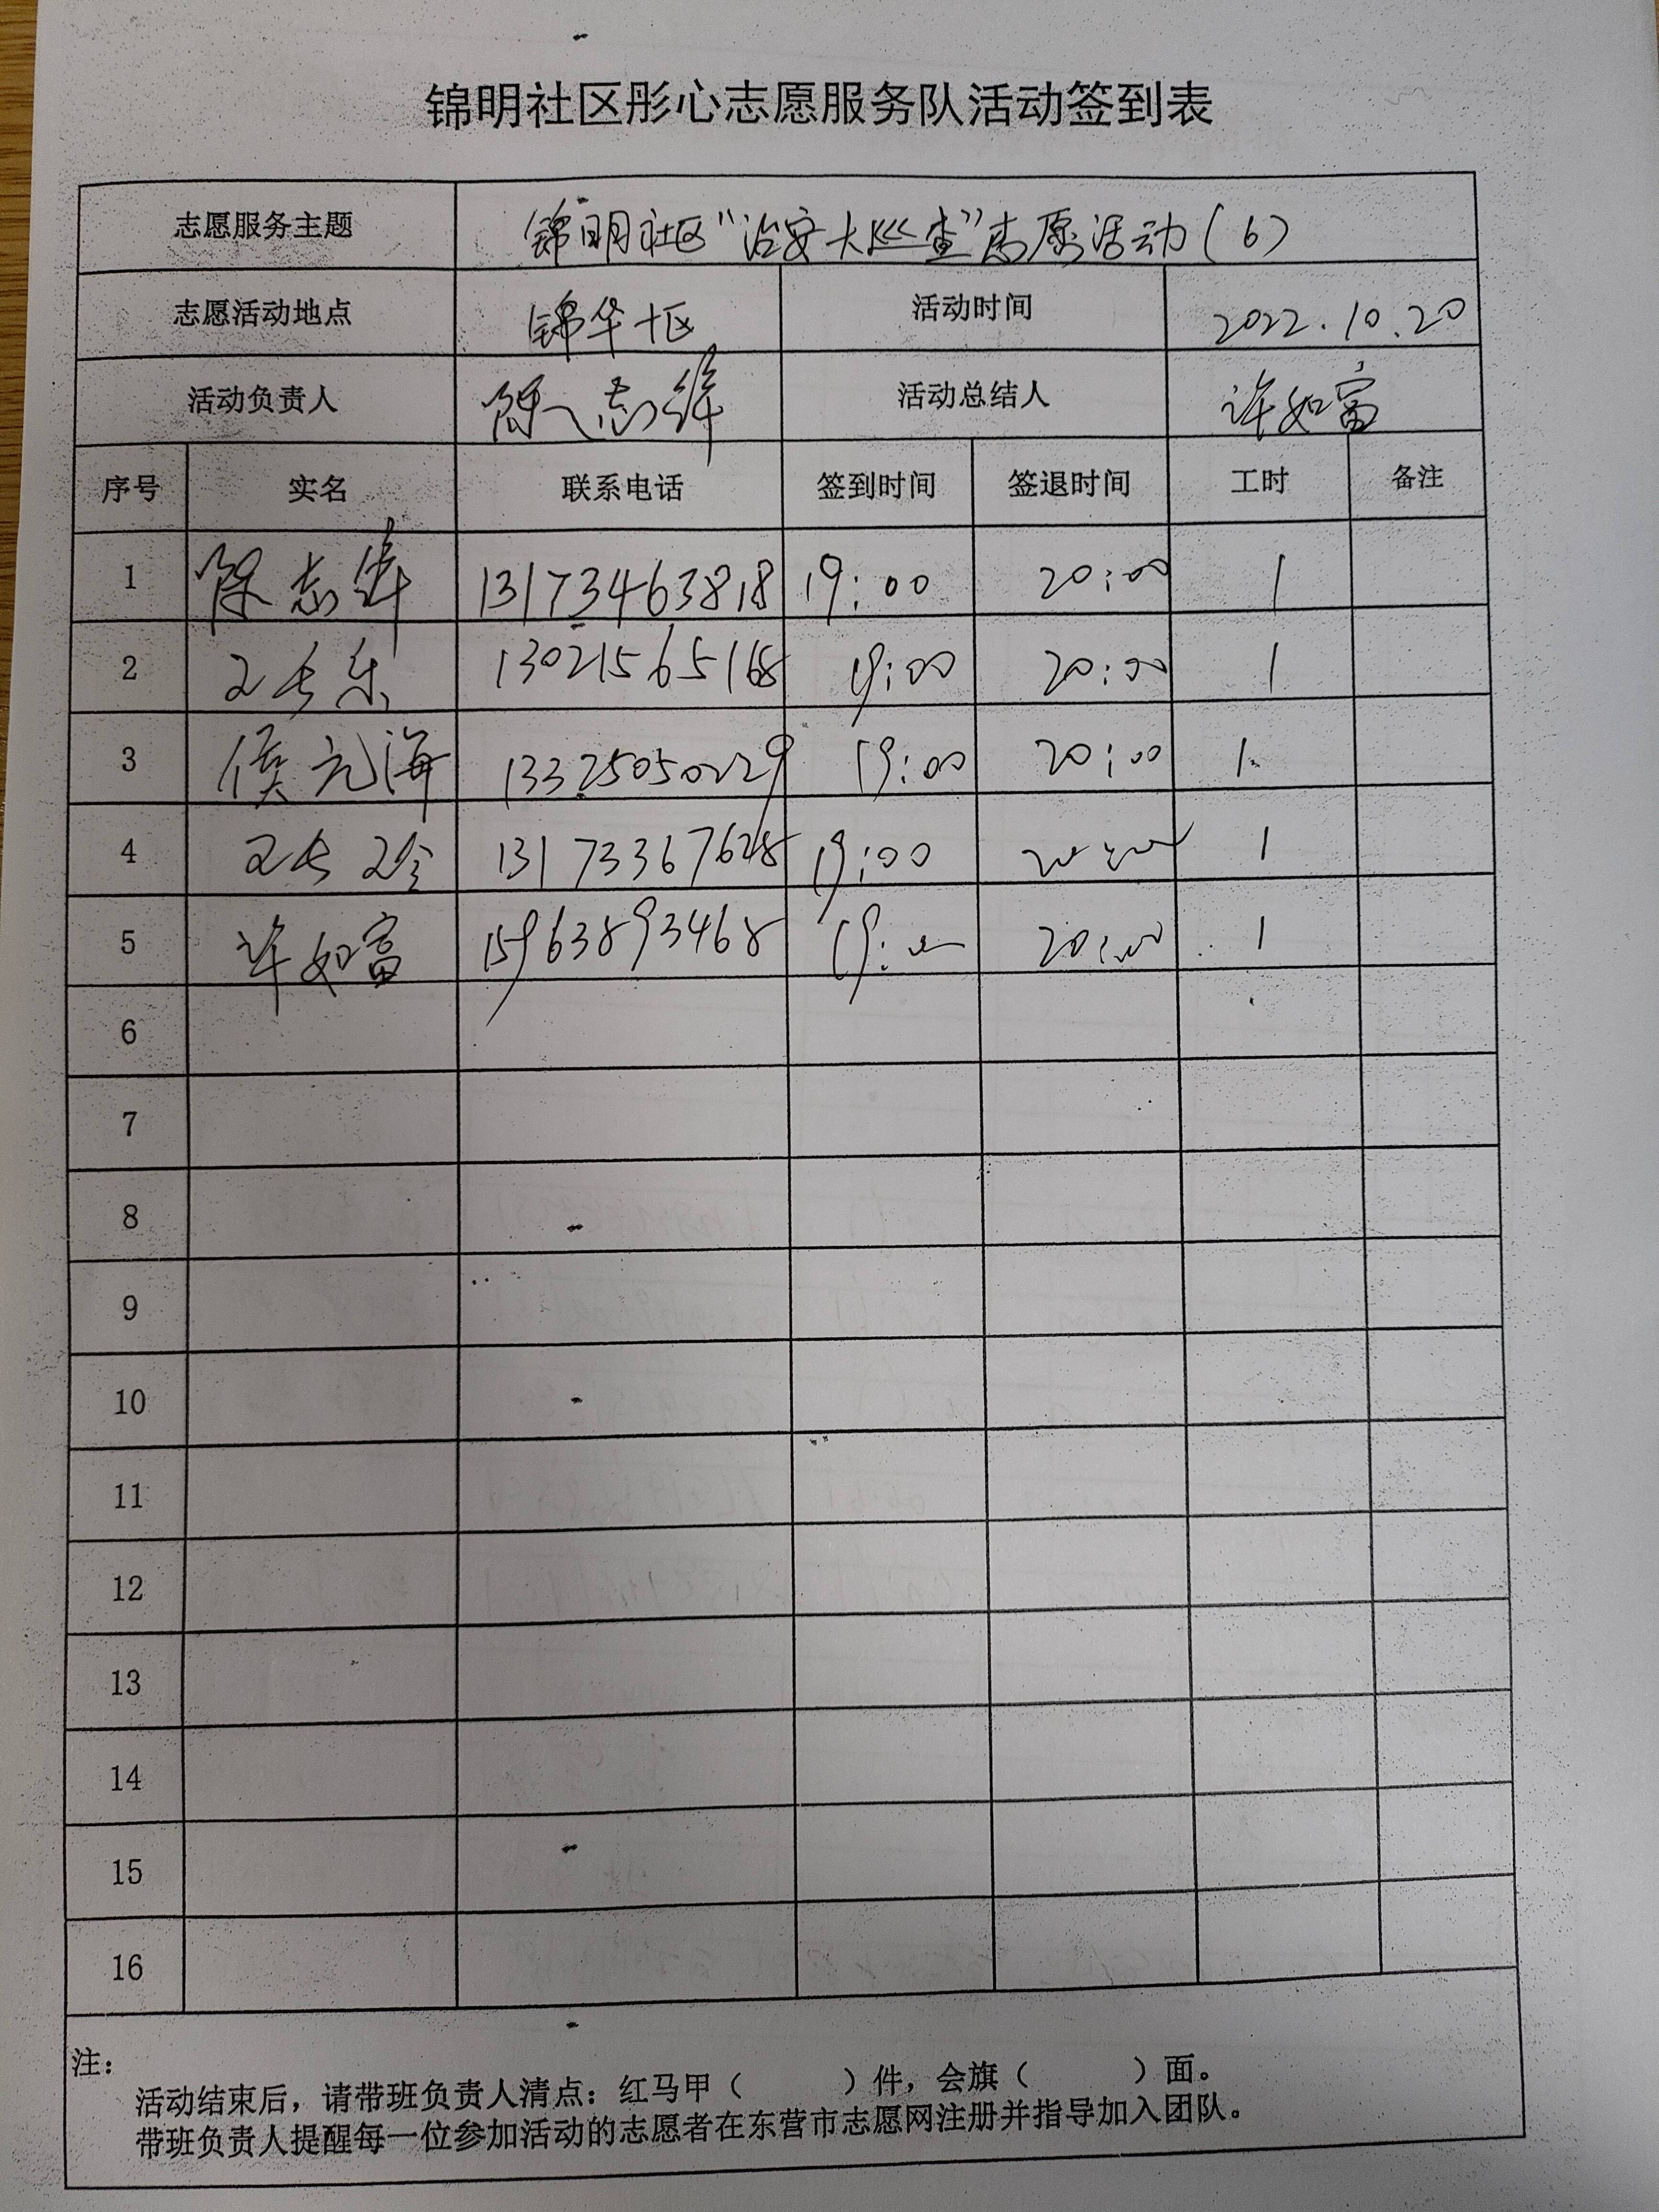 锦明社区彤心志愿服务队活动签到表
志愿服务主题 锦明社区“治安大巡查”志愿活动(6)
志愿活动地点 锦华十区 活动时间 2022.10.20
活动负责人 陈志锋 活动总结人 许如富
序号 实名 联系电话 签到时间 签退时间 工时 备注
1 陈志锋 13173463818 19:00 20:00 1
2 13021565168 19:00 20:00 1
3 侯元海 13325050229 19:00 20:00 1
4 13173367628 19:00 20:00 1
5 许如富 15963893468 19:00 20:00 1
6
7
8
9
10
11
12
13
14
15
16
注:
活动结束后，请带班负责人清点：红马甲（ ）件，会旗（ ）面。
带班负责人提醒每一位参加活动的志愿者在东营市志愿网注册并指导加入团队。